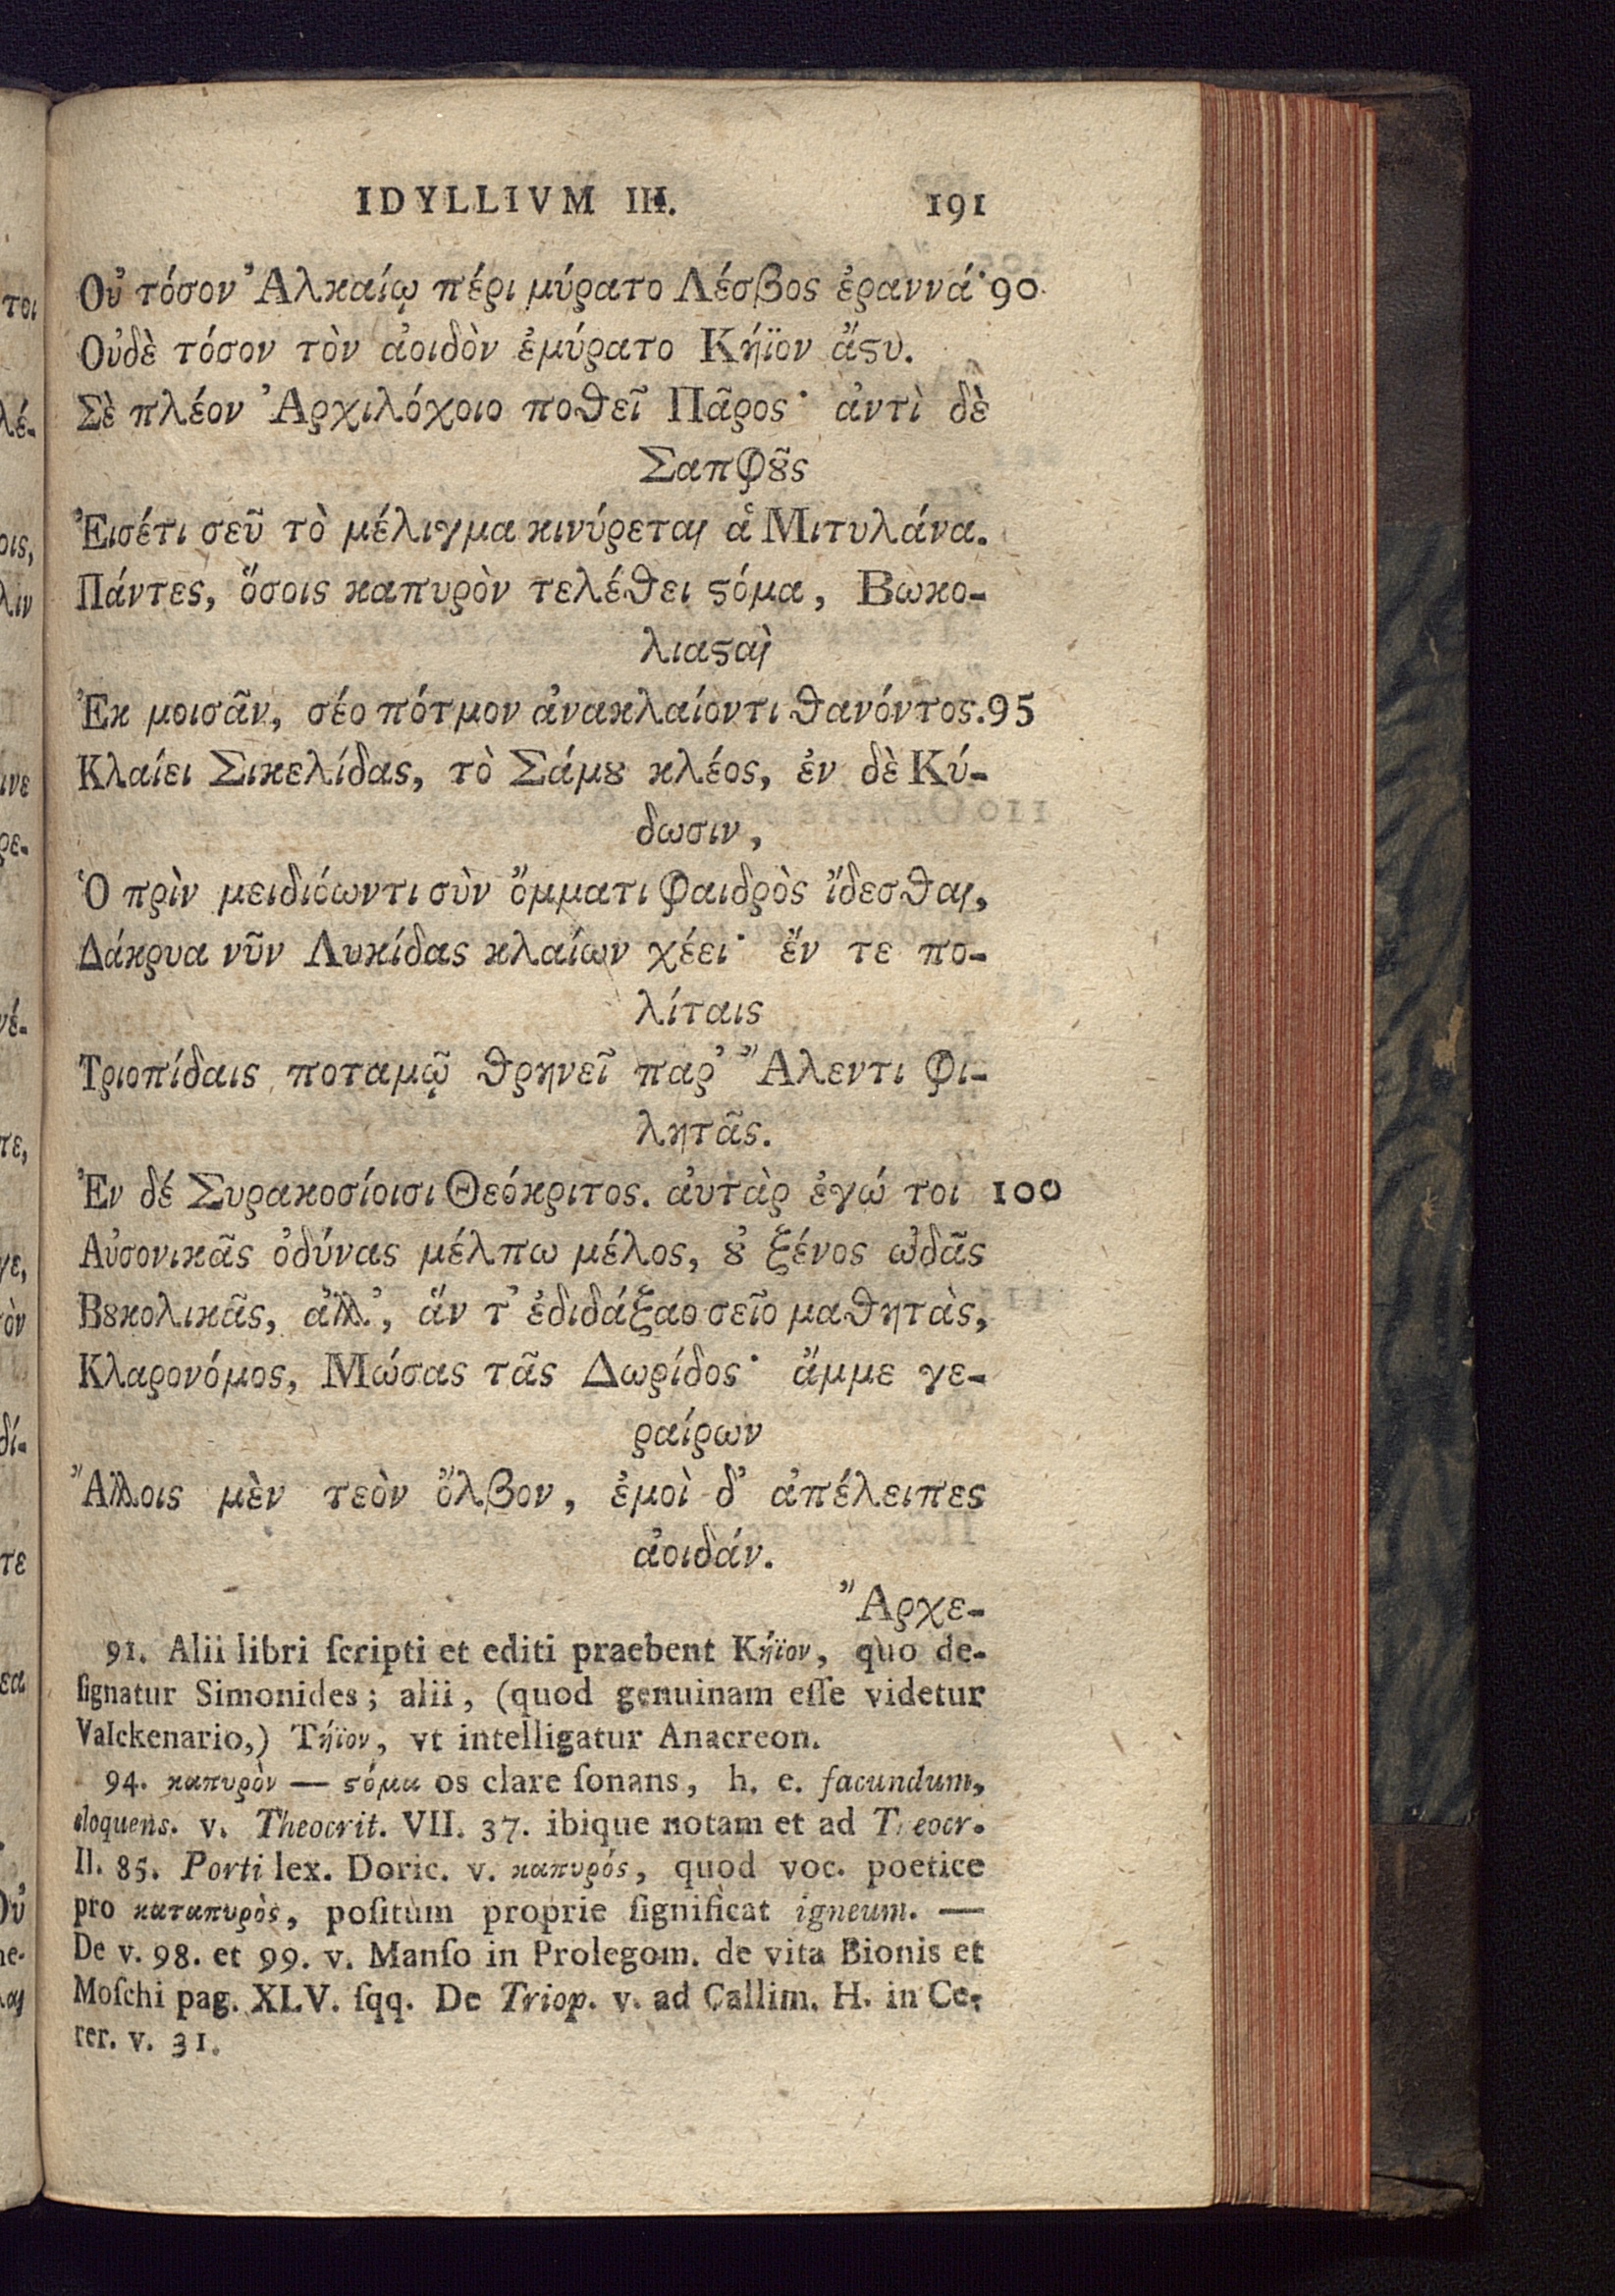 IDYLLIVM III. 191
Οὐ τόσον Ἀλκαίῳ πέρι μύρατο Λέσβος ἐραννά· 90
Οὐδὲ τόσον τὸν ἀοιδὸν ἐμύρατο Κήϊον ἄϛυ.
Σὲ πλέον Ἀρχιλόχοιο ποθεῖ Πᾶρος· ἀντὶ δὲ
Σαπφȣ͂ς
Ἐισέτι σεῦ τὸ μέλιγμα κινύρεται ἁ Μιτυλάνα.
Πάντες, ὅσοις καπυρὸν τελέθει ϛόμα, Βωκο-
λιαϛαὶ
Ἐκ μοισᾶν, σέο πότμον ἀνακλαίοντι θανόντος. 95
Κλαίει Σικελίδας, τὸ Σάμȣ κλέος, ἐν δὲ Κύ-
δωσιν,
Ὁ πρὶν μειδιόωντι σὺν ὄμματι φαιδρὸς ἴδεσθαι,
Δάκρυα νῦν Λυκίδας κλαίων χέει· ἔν τε πο-
λίταις
Τριοπίδαις ποταμῷ θρηνεῖ παρ' Ἄλεντι Φι-
λητᾶς.
Ἐν δέ Συρακοσίοισι Θεόκριτος. ἀυτὰρ ἐγώ τοι 100
Αὐσονικᾶς ὀδύνας μέλπω μέλος, ȣ̓ ξένος ᾠδᾶς
Βȣκολικᾶς, ἀλλ', ἅν τ' ἐδιδάξαο σεῖο μαθητὰς,
Κλαρονόμος, Μώσας τᾶς Δωρίδος· ἄμμε γε-
ραίρων
Ἄλλοις μὲν τεὸν ὄλβον, ἐμοὶ δ' ἀπέλειπες
ἀοιδάν.
Ἄρχε-
91. Alii libri ſcripti et editi praebent Κήϊον, quo de-
ſignatur Simonides; alii, (quod genuinam eſſe videtur
Valckenario,) Τήϊον, vt intelligatur Anacreon.
94. καπυρὸν — ϛόμα os clare ſonans, h. e. facundum,
eloquens. v. Theocrit. VII. 37. ibique notam et ad Theocr.
II. 85. Porti lex. Doric. v. καπυρός, quod voc. poetice
pro καταπυρὸς, poſitum proprie ſignificat igneum. —
De v. 98. et 99. v. Manſo in Prolegom. de vita Bionis et
Moſchi pag. XLV. ſqq. De Triop. v. ad Callim. H. in Ce-
rer. v. 31.